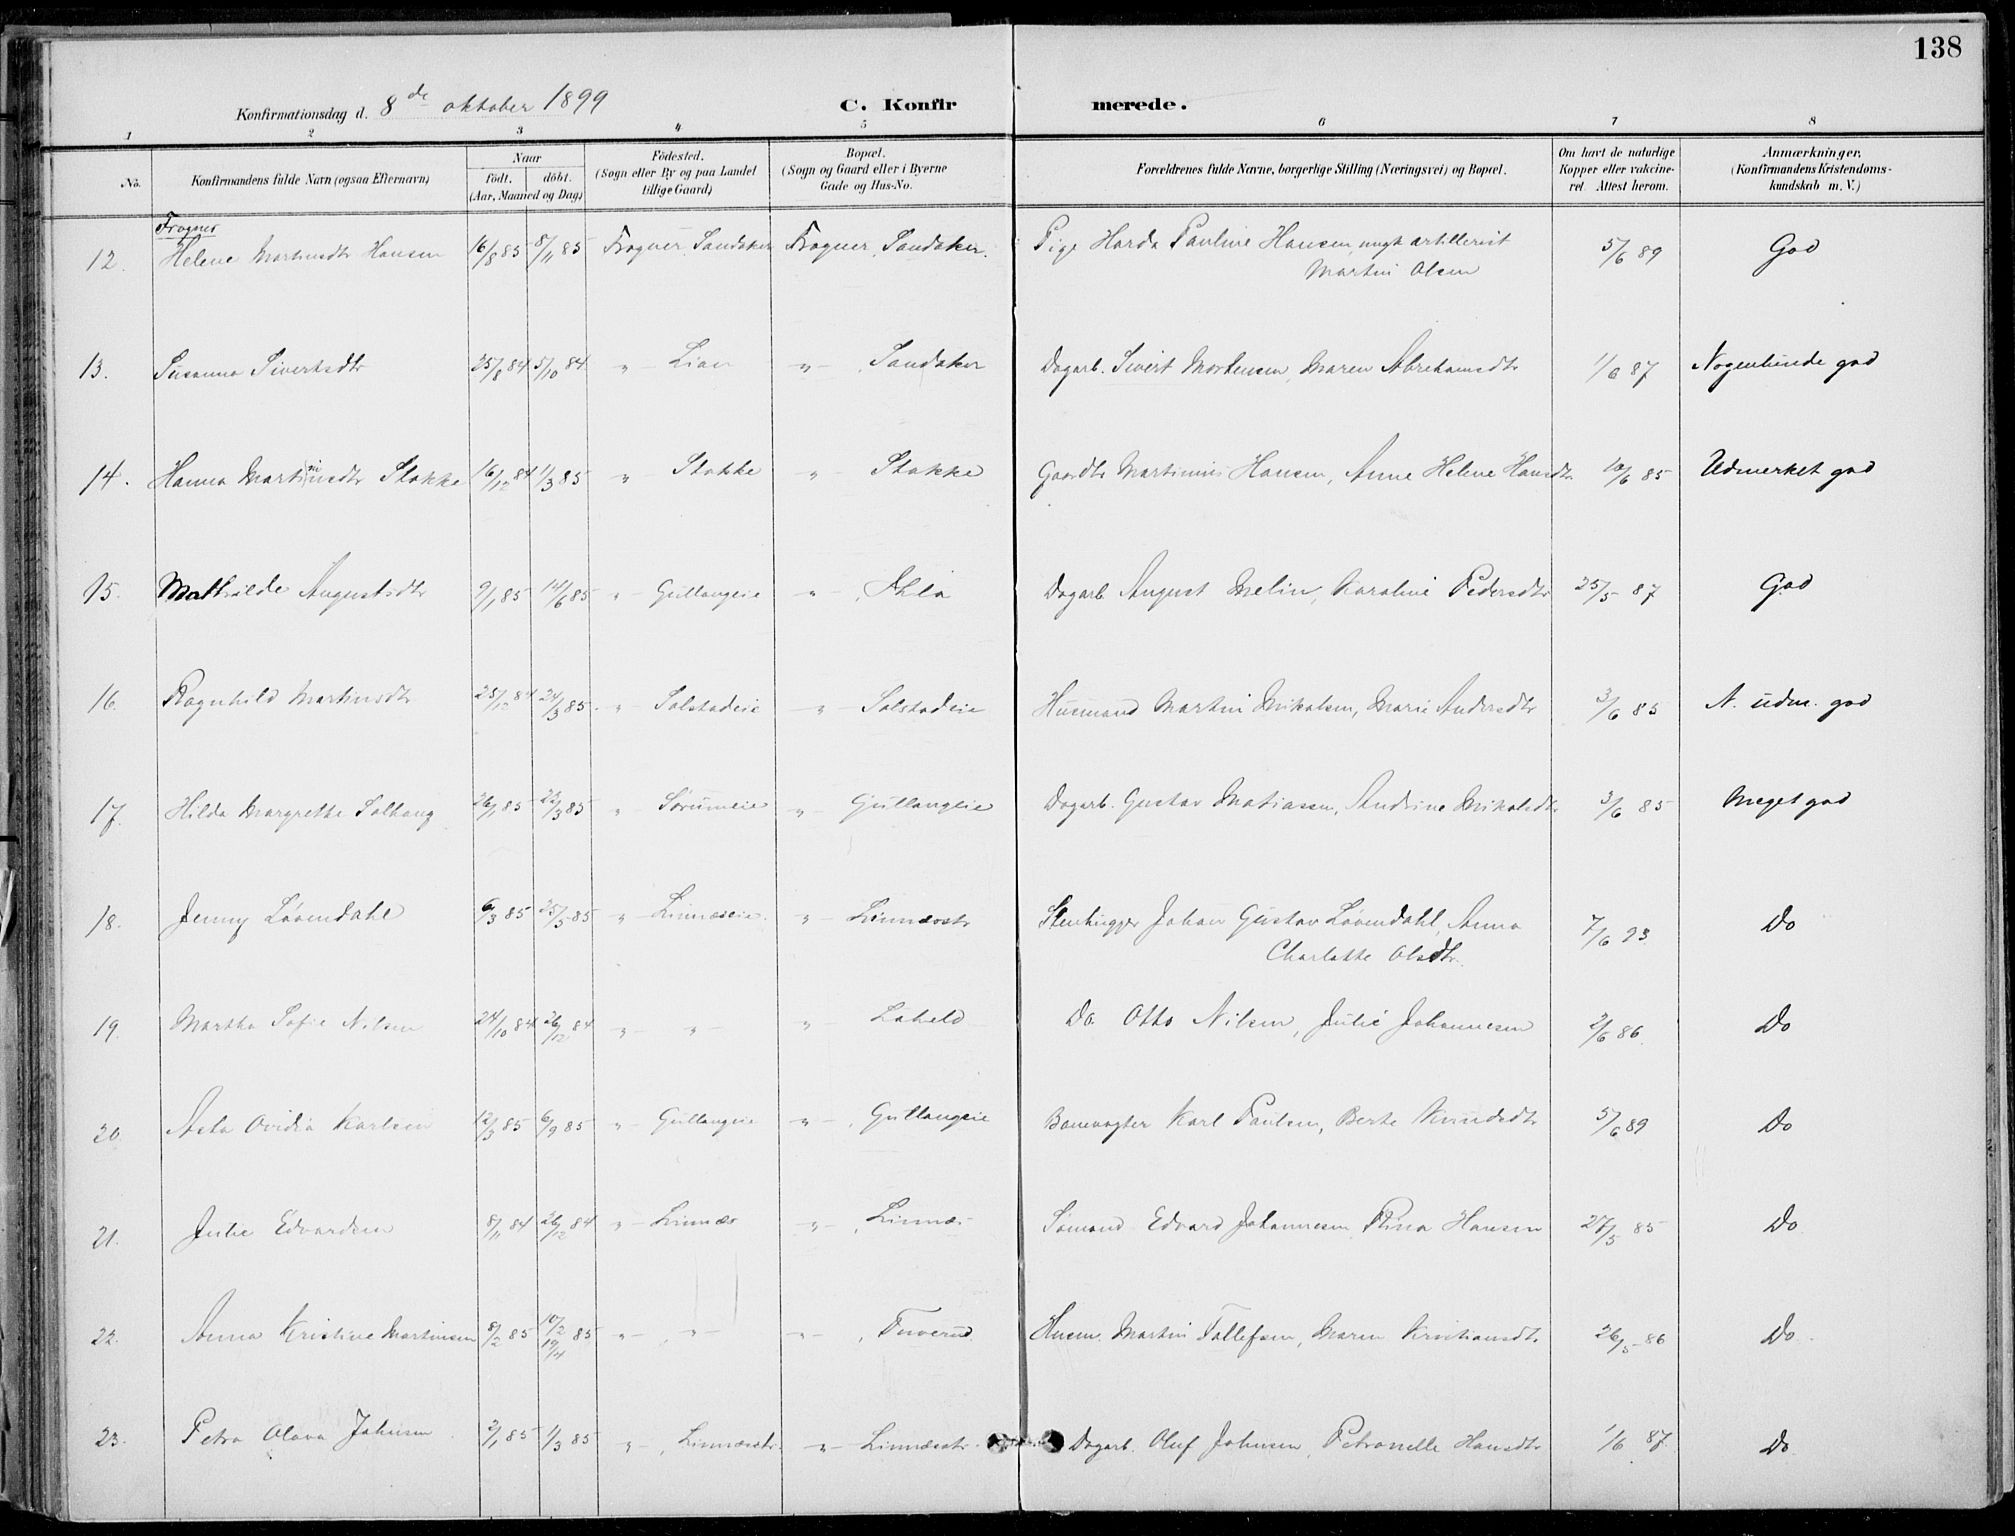 138
Konfirmationsdag d. 8de oktober 1899
C. Konfirmerede.
1 2 3 4 5 6 7 8
No. Konfirmandens fulde Navn (ogsaa Efternavn) Naar født. døbt. (Aar, Maaned og Dag) Fødested. (Sogn eller By og paa Landet tillige Gaard) Bopæl. (Sogn og Gaard eller i Byerne Gade og Hus-No. Forældrenes fulde Navne, borgerlige Stilling (Næringsvei) og Bopæl. Om havt de naturlige Kopper eller vaccineret. Attest herom. Anmærkninger. (Konfirmandens Kristendomskundskab m. V.)
Frogner
12. Helene Martinsdtr Hansen 16/8 85 8/11 85 Frogner Sandaker Frogner, Sandaker. Pige Harda Pauline Hansen, ungk artillerist 5/6 89 God
Martin Olsen
13. Susanna Sivertsdtr 25/8 84 5/10 84 " Lian " - , Sandaker Dagarb. Sivert Mortensen, Maren Abrahamsdtr 1/6 87 Nogenlunde god
14. Hanna Martininsdtr Stokke 16/12 84 1/3 85 " Stokke " Stokke Gaardbr Martinius Hansen, Anne Helene Hansdtr 10/6 85 Udmerket god
15. Mathilde Augustsdtr 9/1 85 14/6 85 " Gullaugeie " - , Dagarb. August Melin, Karoline Pedersdtr 25/5 87 God
16. Ragnhild Martinsdtr 25/12 84 24/3 85. " Solstadeie " Solstadeie Husmand Martin Mikalsen, Marie Andersdtr 3/6 85 N. udm. god
17. Hilda Margrethe Solhaug 26/1 85 22/3 85 " Sørumeie " Gullaugeie Dagarb. Gustav Matiassen, Andrine Mikalsdtr. 3/6 85 Meget god
18. Jenny Løvendahl 6/3 85 25/5 85 " Linnæseie. " Linnæsstr Stenhugger Johan Gustav Løvendahl, Anna 7/6 93 Do
Charlotte Olsdtr.
19. Martha Sofie Nilsen 24/10 84 26/12 84 " " " Laheld Do. Otto Nilsen, Julie Johannesen 2/6 86. Do
20. Asta Ovidia Karlsen 12/3 85 6/9 85 " Gullaugeie " , Gullaugeie Banevogter Karl Paulsen, Berte Knudsdtr 5/6 89 Do
21. Julie Edvardsen 8/11 84 26/12 84 " Linnæs " , Linnæs Sømand Edvard Johannesen, Stina Hansen 27/5 85 Do
22. Anna Kristine Martinsen 8/2 85 10/2 19/4 85 " " " , Tuverud Husm. Martin Tollefsen, Maren Kristiansdtr. 26/5 86 Do
23. Petra Olava Johnsen 2/1 85 1/3 85 " , Linnæsstr. " Linnæsstr. Dagarb. Oluf Johnsen, Petronelle Hansdtr 1/6 87 Do